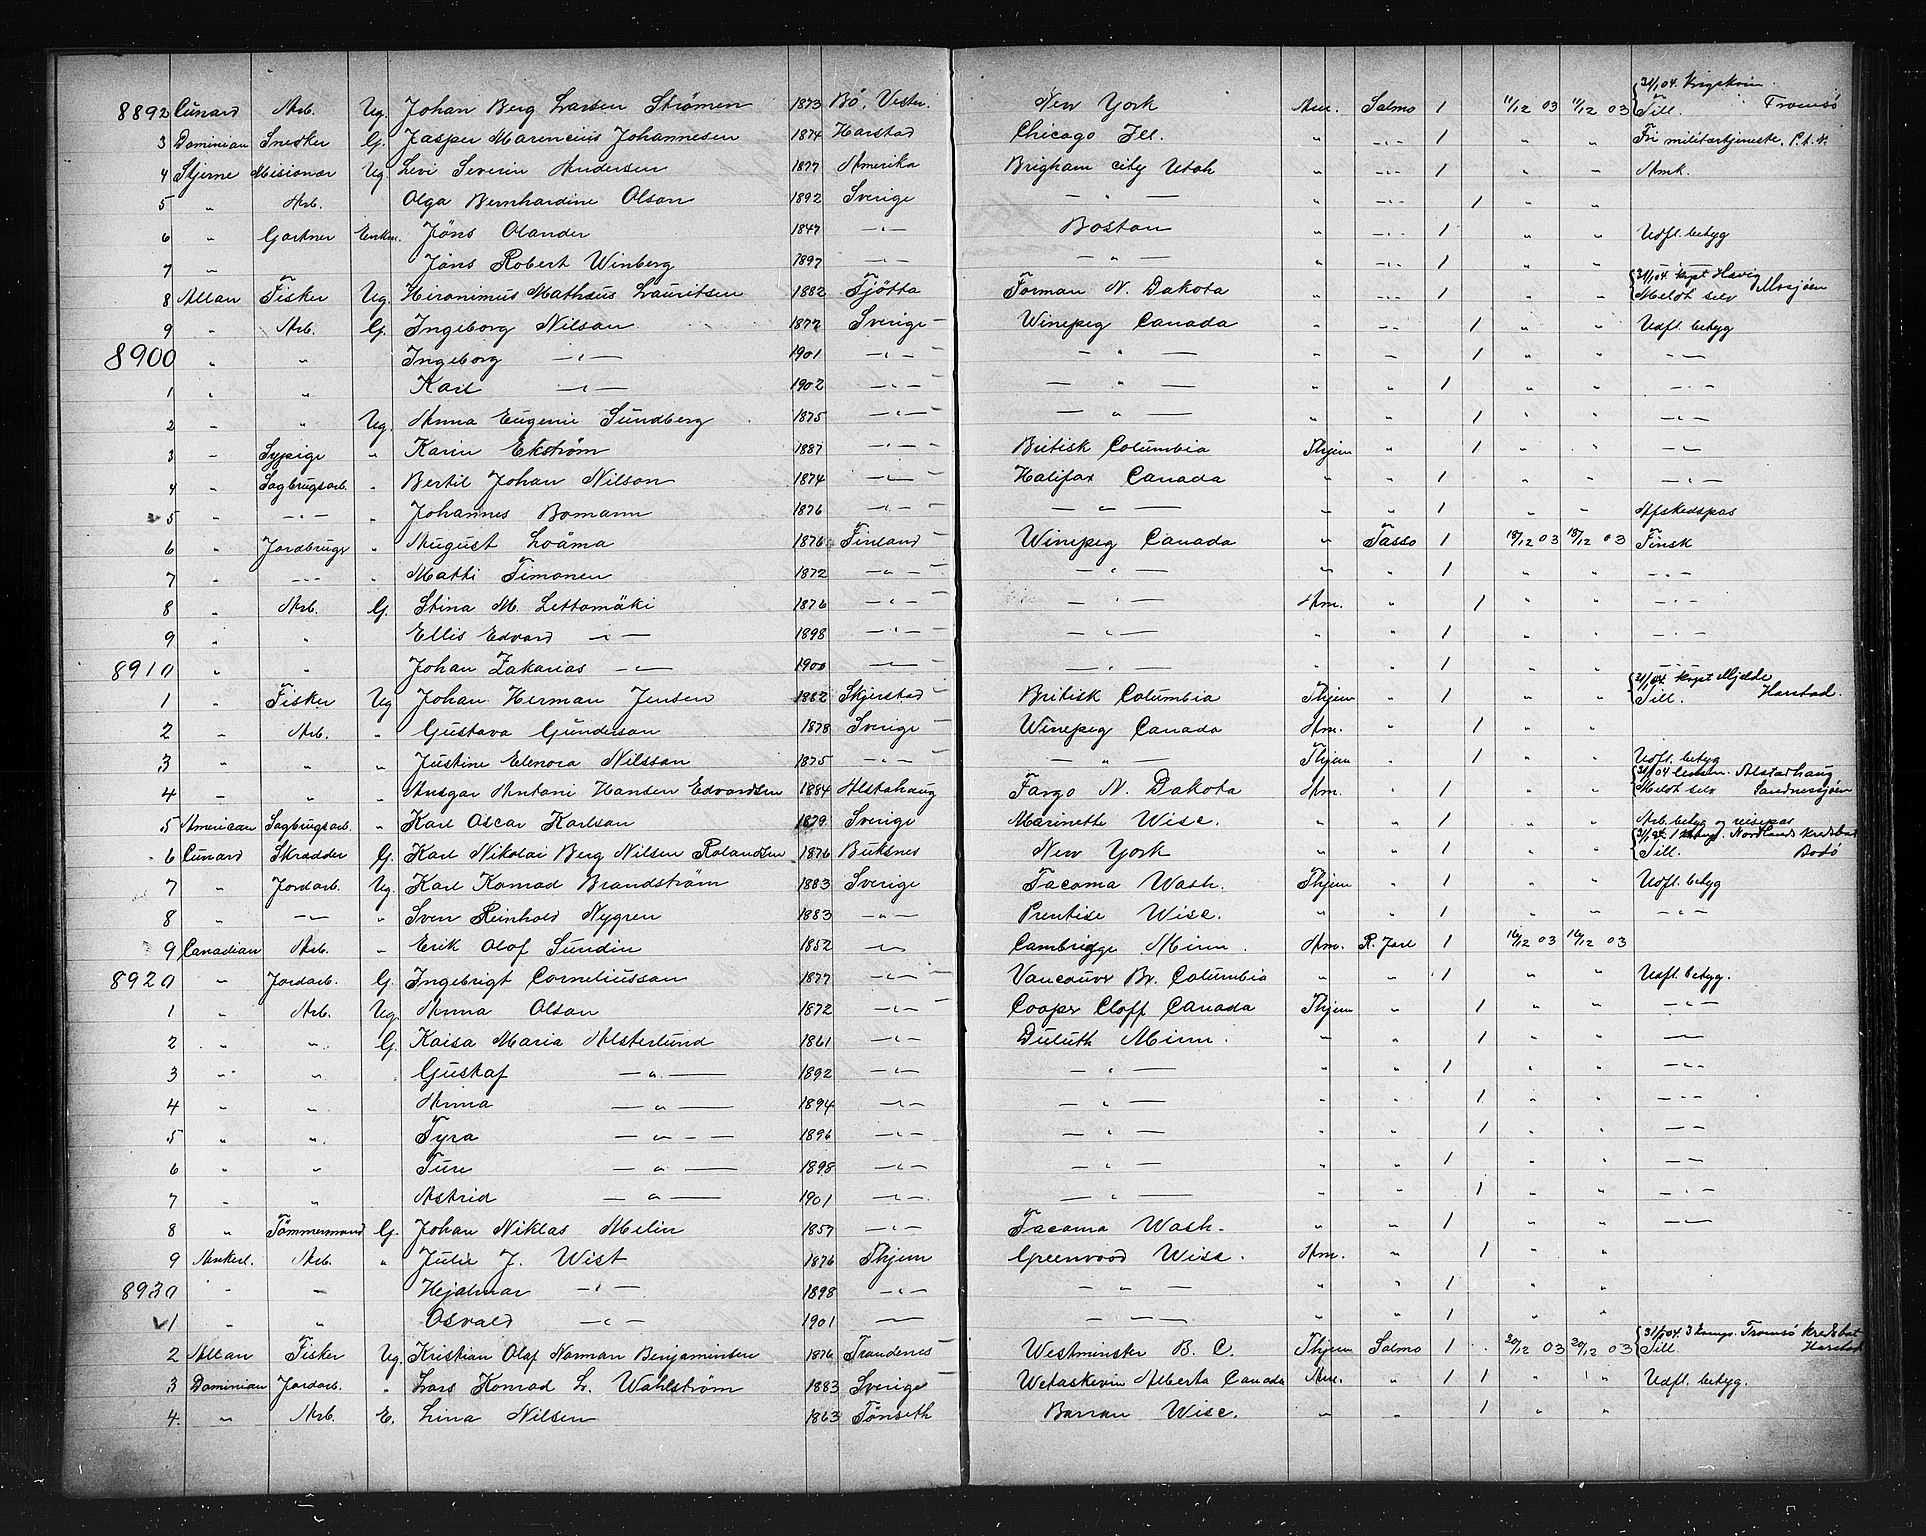 8892 Cunard Arb. Ug. Johan Berg Larsen Strömen 1873 Bö, Vester. New York Am. Salmo 1 11/12 03 11/12 03 Till. Tromsö
3 Dominian Snedker G. Jasper Marencius Johannesen 1874 Harstad Chicago Ill. " -"- 1 " " Fri militærtjeneste,
4 Stjerne Misionær Ug. Levi Severin Andersen 1877 Amerika Brigham city Utah " -"- 1 " " Amk.
5 " Arb. Olga Bernhardine Olson 1892 Sverige — " — " -"- 1 " "
6 " Gartner Enkm. Jöns Olander 1847 -"- Boston " -"- 1 " " Udfl. betyg
7 " Jöns Robert Winberg 1897 -"- — " — " -"- 1 " " — " —
8 Allan Fisker Ug. Hironimus Mathæus Lauritsen 1882 Tjötta Forman N. Dakota " -"- 1 " " {31/1 04. Meldt selv Mosjöen
9 " Arb. G. Ingeborg Nilson 1877 Sverige Winepeg Canada " -"- 1 " " Udfl. betyg
8900 " " Ingeborg -"- 1901 -"- — " — " - 1 " " -"-
1 " " Karl -"- 1902 -"- — " — " " 1 " " -"-
2 " " Ug. Anna Eugenie Sundberg 1875 -"- — " — " " 1 " " -"-
3 " Sypige " Karin Ekström 1887 -"- Britisk Columbia Thjem " 1 " " -"-
4 " Sagbrugsarb. " Bertil Johan Nilson 1874 -"- Halifax Canada " " 1 " " -"-
5 " -"- " Johannes Bomann 1876 -"- — " — " " 1 " " Afskedspas
6 " Jordbruger " August Loåma 1876 Finland Winepeg Canada " Tasso 1 18/12 03 18/12 03 Finsk
7 " -"- " Matti Timonen 1872 -"- — " — " " 1 " " -"-
8 " Arb. G. Stina M. Lettomäki 1876 -"- — " — Am. " 1 " " -"-
9 " " Ellis Edvard -"- 1898 -"- — " — " " 1 " " -"-
8910 " " Johan Zakarias -"- 1900 -"- — " — " " 1 " " -"-
1 " Fisker Ug Johan Herman Jensen 1882 Skjerstad Britisk Columbia Thjem " 1 " " Till. Harstad.
2 " Arb. " Gustava Gunderson 1878 Sverige Winepeg Canada Am. " 1 " "
3 " " " Justine Elenora Nilsson 1875 -"- — " — Thjem " 1 " " Udfl. betyg
4 " " " Ansgar Antoni Hansen Edvardsen 1884 Alstahaug Fargo N. Dakota Am. " 1 " " {31/1 04 Alstadhaug Meldt selv Sandnessjöen
5 American Sagbrugsarb. " Karl Oscar Karlson 1879 Sverige Marinette Wisc. " " 1 " " Arb. betyg og reisepas
6 Cunard Skrædder G. Karl Nikolai Berg Nilsen Rolandsen 1876 Buksnes New York " " 1 " " Nordlands kredsbat Till. Bodö
7 " Jordarb. Ug. Karl Konrad Brandström 1883 Sverige Tacoma Wash. Thjem " 1 " " Udfl. betyg
8 " -"- " Sven Reinhold Nygren 1883 -"- Prentise Wisc. " " 1 " " -"-
9 Canadian Arb. " Erik Olof Sundin 1852 -"- Cambrigge Minn. Am. R. Jarl 1 16/12 03 16/12 03
8920 " Jordarb. G. Ingebrigt Corneliusson 1877 -"- Vancouvr Br. Columbia " " 1 " " Udfl. betyg.
1 " Arb. Ug. Anna Olson 1872 -"- Cooper Cloff Canada Thjem " 1 " " -"-
2 " " G. Kaisa Maria Alsterlund 1861 -"- Duluth Minn. " " 1 " " -"-
3 " " Gustaf -"- 1892 -"- — " — " " 1 " " -"-
4 " " Anna -"- 1894 -"- — " — " " 1 " " -"-
5 " " Tyra -"- 1896 -"- — " — " " 1 " " -"-
6 " " Ture -"- 1898 -"- — " — " " 1 " " -"-
7 " " Astrid -"- 1901 -"- — " — " " 1 " " -"-
8 " Tömmermand G. Johan Niklas Melin 1857 -"- Tacoma Wash. " " 1 " " -"-
9 Ankerl. Arb. " Julie J. Wist 1876 Thjem Greenwood Wisc. Am. " 1 " "
8930 " " Hejalmar -"- 1898 -"- — " — " " 1 " "
1 " " Osvald -"- 1901 -"- — " — " " 1 " "
2 Allan Fisker Ug. Kristian Olaf Norman Benjaminsen 1876 Trondenes Westminster B. C. Thjem Salmo 1 20/12 03 20/12 03 {31/1 04. 3 komp. Tromsö kredsbat Till. Harstad
3 Dominian Jordarb. " Lars Konrad L. Wahlström 1883 Sverige Wetaskevin Alberta Canada Am. " 1 1 " " Udfl. betyg.
4. " Arb. E. Lina Nilsen 1863 Tönseth Barran Wisc. " " 1 " "